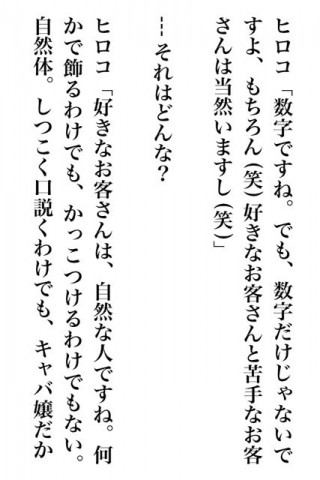 ヒロコ「数字ですね。でも、数字だけじゃないで
すよ、もちろん(笑)好きなお客さんと苦手なお客
さんは当然いますし(笑)」
--- それはどんな？
ヒロコ「好きなお客さんは、自然な人ですね。何
かで飾るわけでも、かっこつけるわけでもない。
自然体。しつこく口説くわけでも、キャバ嬢だか